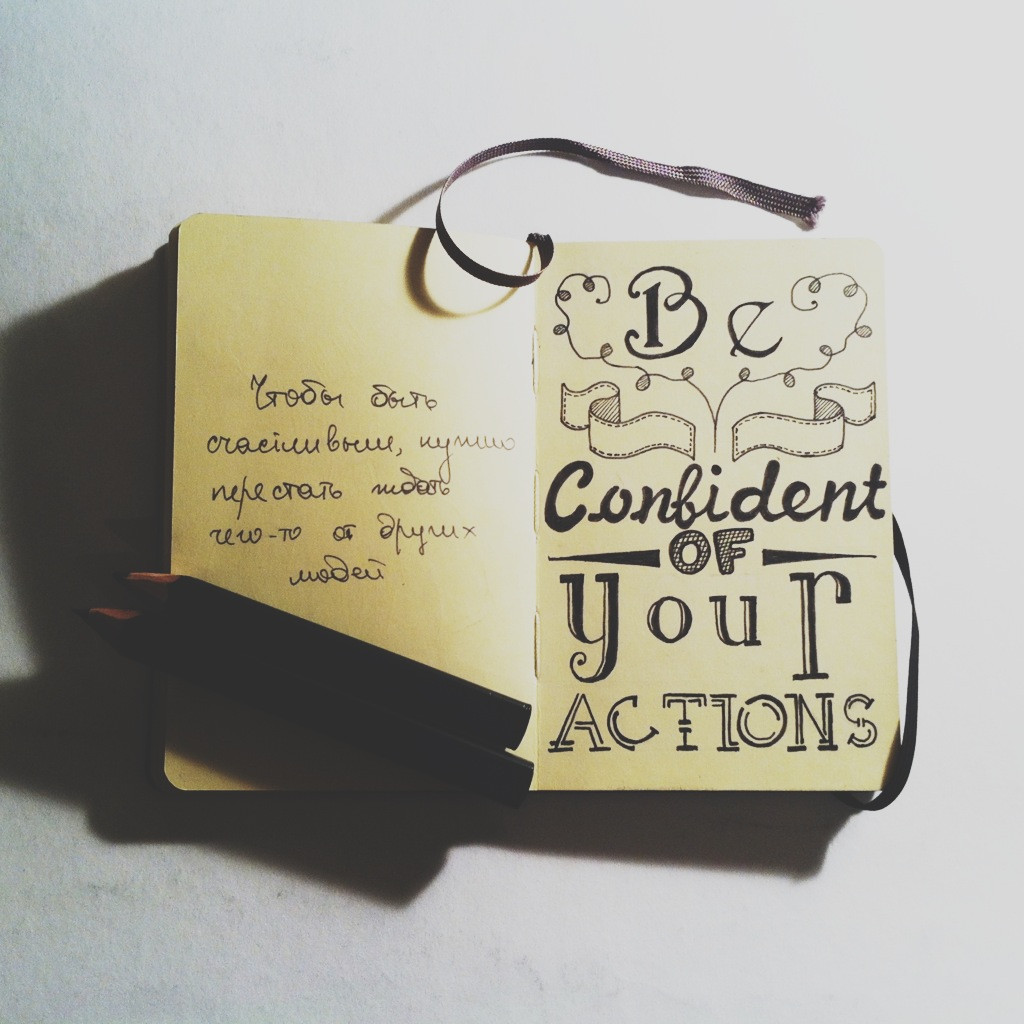 Чтобы быть
счастливым, нужно
перестать ждать
чего-то от других
людей.
Be
Confident
OF
your
ACTIONS